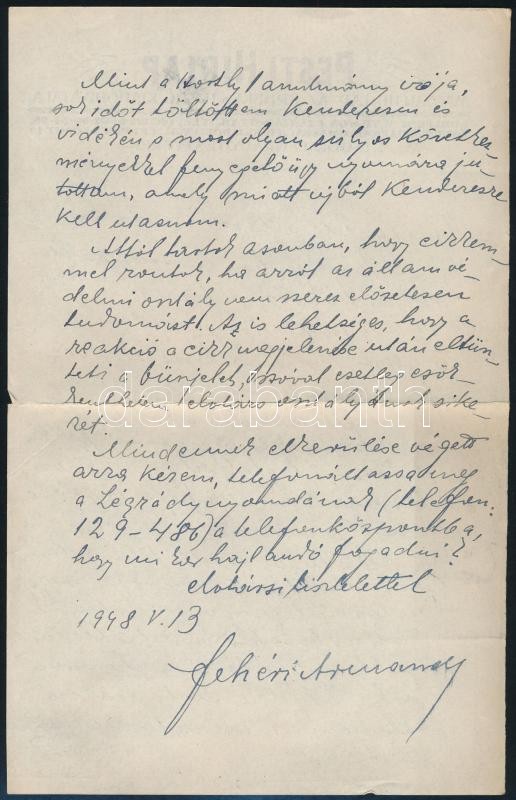 Mint a Horthy tanulmány irója,
sok időt töltöttem Kenderesen és
vidékén s most olyan súlyos következ-
ményekkel fenyegető ügy nyomára ju-
tottam, amely miatt ujból Kenderesre
kell utaznom.
Attól tartok azonban, hogy cikkem-
mel rontok, ha arról az államvé-
delmi osztály nem szerez előzetesen
tudomást. Az is lehetséges, hogy a
reakció a cikk megjelenése után eltün-
teti a bünjelet, szóval esetleg csök-
kenthetem elvtárs osztályának sike-
rét.
Mindennek elkerülése végett
arra kérem, telefonáltassa meg
a Légrády nyomdának (telefon:
129-486) a telefonközpontba,
hogy mikor hajlandó fogadni?
elvtársi tisztelettel
1948 V. 13
Fehéri Armand
darabanth